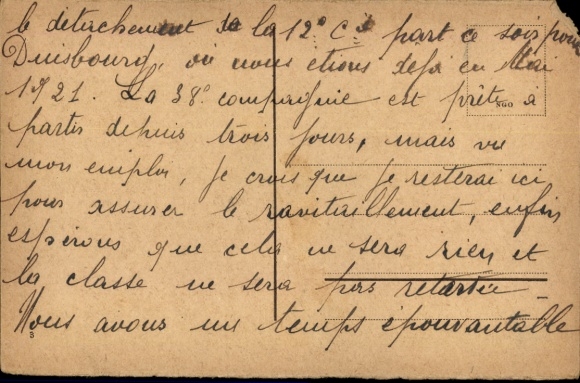 le détachement de la 12e Cie part ce soir pour
Duisbourg, où nous étions déjà en Mai
1921. La 38e compagnie est prête à
partir depuis trois jours, mais vu
mon emploi, je crois que je resterai ici
pour assurer le ravitaillement, enfin
espérons que cela ne sera rien et
la classe ne sera pas retardée
Nous avons un temps épouvantable